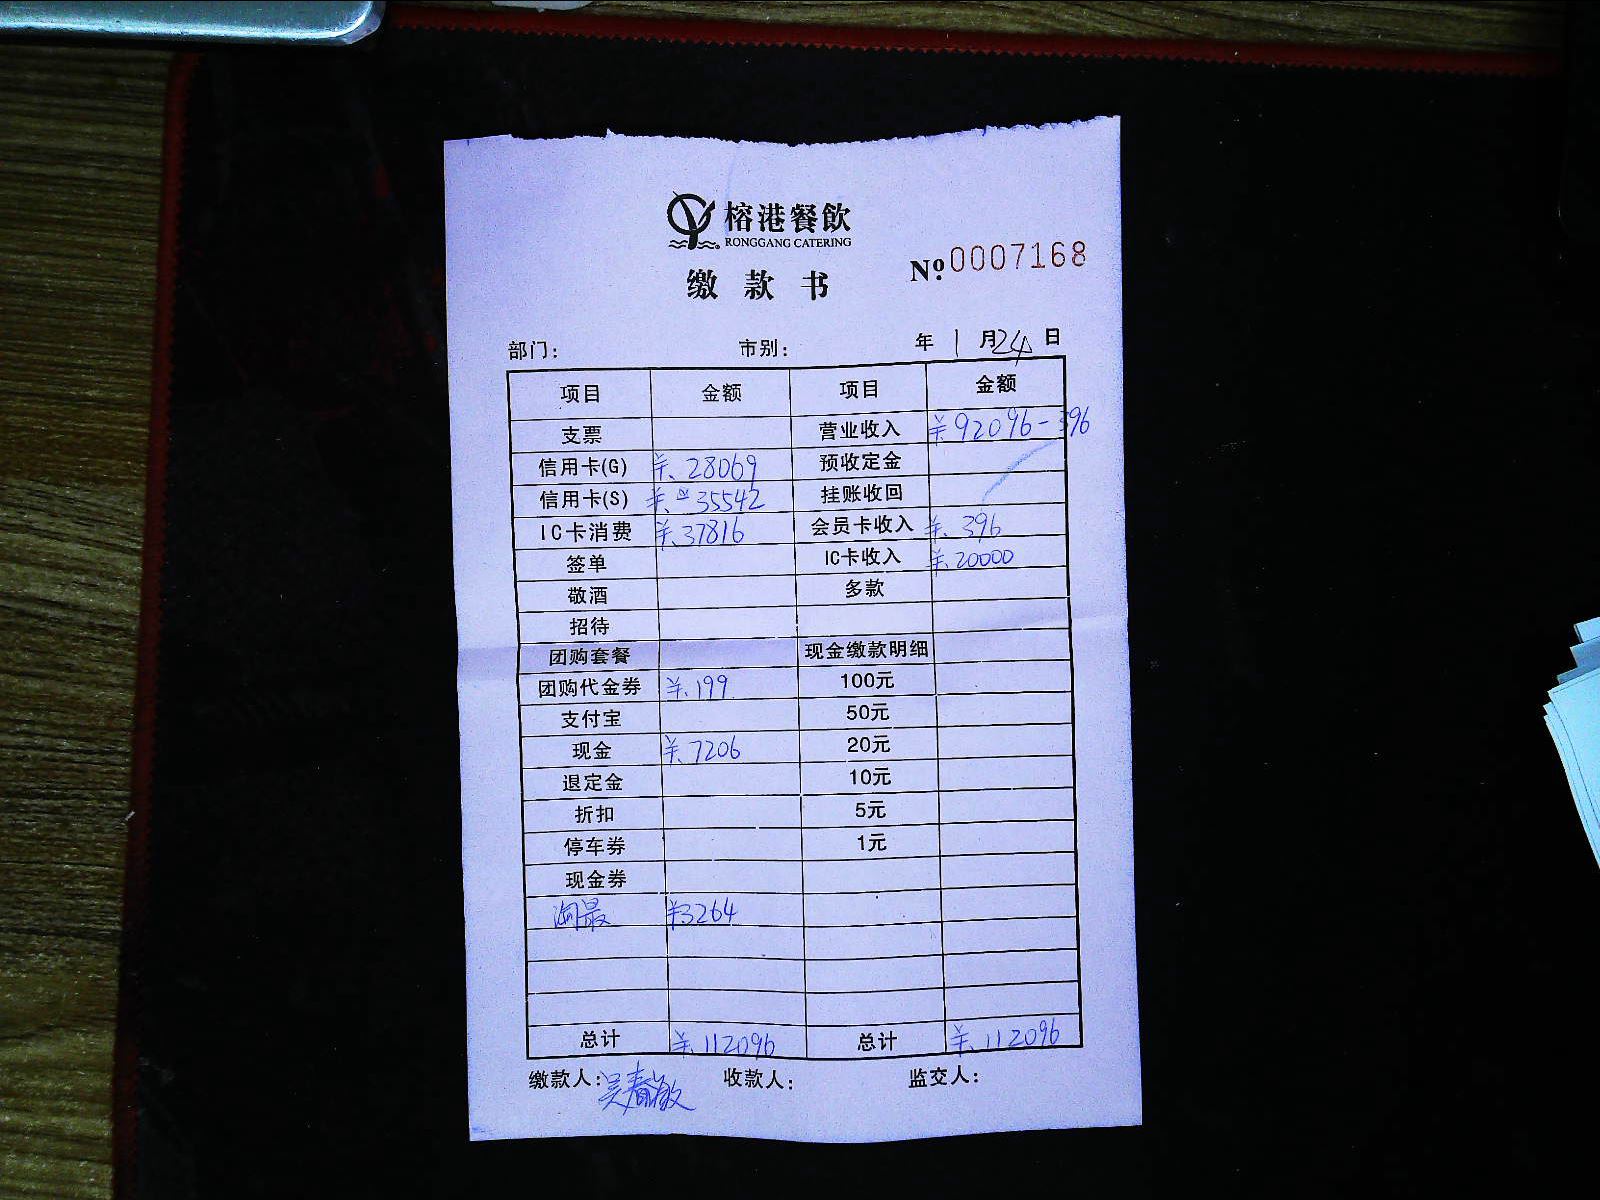 榕港餐飲
RONGGANG CATERING
缴款书
№0007168
部门： 市别： 年 1 月 24 日
项目 金额 项目 金额
支票 营业收入 ¥92096-396
信用卡(G) ¥.28069 预收定金
信用卡(S) ¥.35542 挂账收回
IC卡消费 ¥.37816 会员卡收入 ¥.396
签单 IC卡收入 ¥.20000
敬酒 多款
招待
团购套餐 现金缴款明细
团购代金券 ¥.199 100元
支付宝 50元
现金 ¥.7206 20元
退定金 10元
折扣 5元
停车券 1元
现金券
¥3264
总计 ¥.112096 总计 ¥.112096
缴款人：吴春敏 收款人： 监交人：